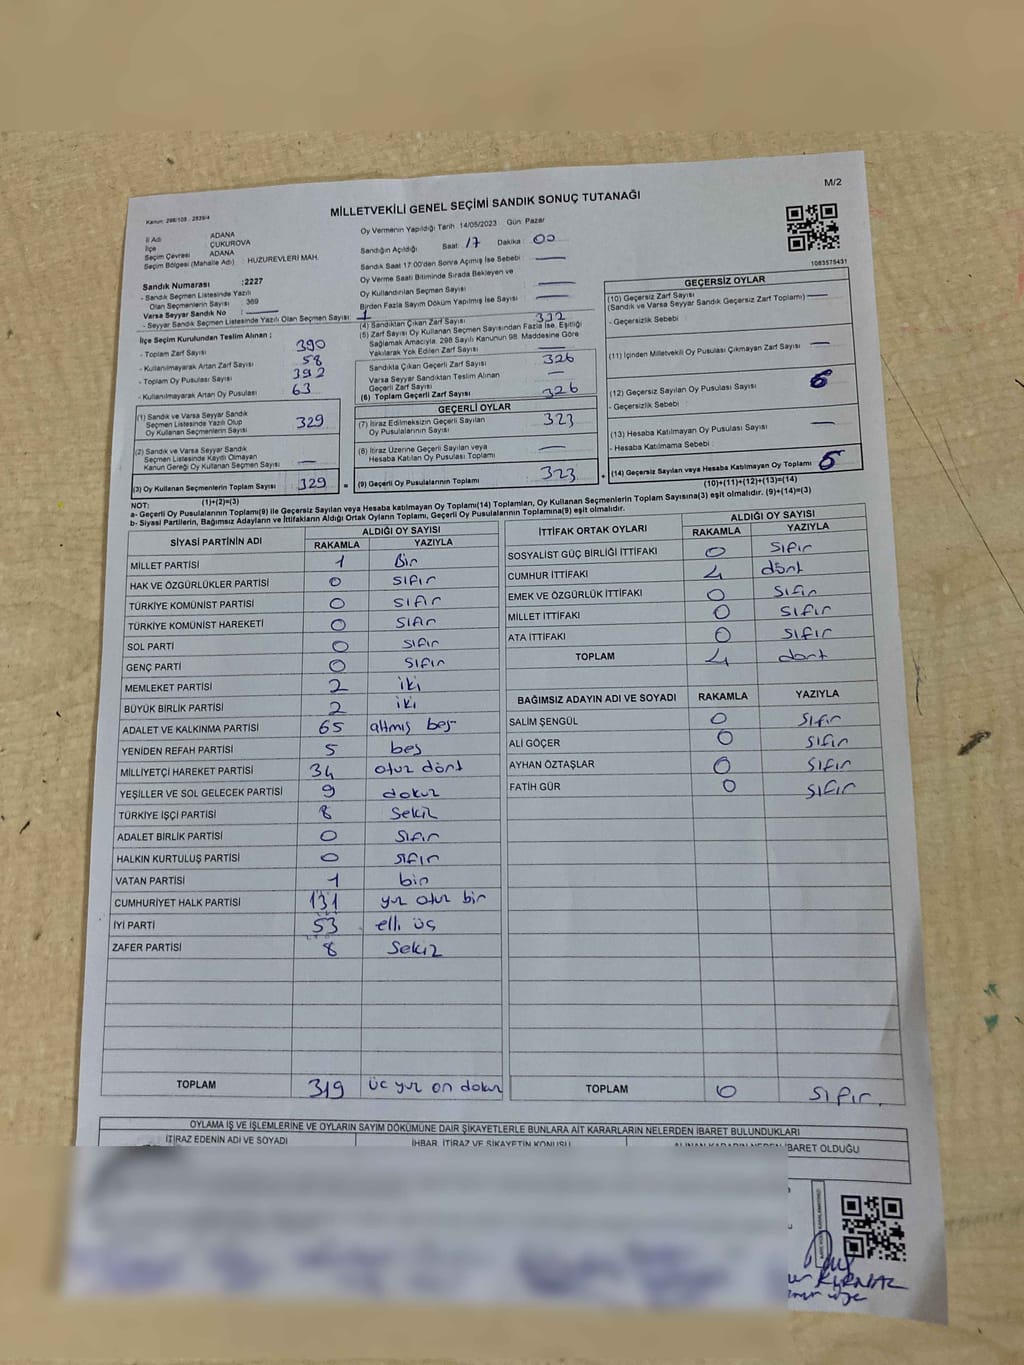 M/2
MİLLETVEKİLİ GENEL SEÇİMİ SANDIK SONUÇ TUTANAĞI
Kanun: 298/105 - 2839/4
İl Adı ADANA
İlçe ÇUKUROVA
Seçim Çevresi ADANA
Seçim Bölgesi (Mahalle Adı) : HUZUREVLERİ MAH.
Sandık Numarası :2227
- Sandık Seçmen Listesinde Yazılı
Olan Seçmenlerin Sayısı : 369
Varsa Seyyar Sandık No :
- Seyyar Sandık Seçmen Listesinde Yazılı Olan Seçmen Sayısı :
İlçe Seçim Kurulundan Teslim Alınan :
- Toplam Zarf Sayısı 390
- Kullanılmayarak Artan Zarf Sayısı 58
- Toplam Oy Pusulası Sayısı 392
- Kullanılmayarak Artan Oy Pusulası 63
(1) Sandık ve Varsa Seyyar Sandık
Seçmen Listesinde Yazılı Olup
Oy Kullanan Seçmenlerin Sayısı 329
(2) Sandık ve Varsa Seyyar Sandık
Seçmen Listesinde Kayıtlı Olmayan
Kanun Gereği Oy Kullanan Seçmen Sayısı —
(3) Oy Kullanan Seçmenlerin Toplam Sayısı : 329 =
(1)+(2)=(3)
Oy Vermenin Yapıldığı Tarih 14/05/2023 Gün: Pazar
Sandığın Açıldığı Saat: 17 Dakika : 00
Sandık Saat 17:00'den Sonra Açımış İse Sebebi —
Oy Verme Saati Bitiminde Sırada Bekleyen ve
Oy Kullandırılan Seçmen Sayısı —
Birden Fazla Sayım Döküm Yapılmış İse Sayısı —
(4) Sandıktan Çıkan Zarf Sayısı 332
(5) Zarf Sayısı Oy Kullanan Seçmen Sayısından Fazla İse, Eşitliği
Sağlamak Amacıyla, 298 Sayılı Kanunun 98. Maddesine Göre
Yakılarak Yok Edilen Zarf Sayısı —
Sandıkta Çıkan Geçerli Zarf Sayısı 326
Varsa Seyyar Sandıktan Teslim Alınan
Geçerli Zarf Sayısı —
(6) Toplam Geçerli Zarf Sayısı 326
GEÇERLİ OYLAR
(7) İtiraz Edilmeksizin Geçerli Sayılan
Oy Pusulalarının Sayısı 323
(8) İtiraz Üzerine Geçerli Sayılan veya
Hesaba Katılan Oy Pusulası Toplamı —
(9) Geçerli Oy Pusulalarının Toplamı : 323 +
1083575431
GEÇERSİZ OYLAR
(10) Geçersiz Zarf Sayısı
(Sandık ve Varsa Seyyar Sandık Geçersiz Zarf Toplamı) —
- Geçersizlik Sebebi :
(11) İçinden Milletvekili Oy Pusulası Çıkmayan Zarf Sayısı —
(12) Geçersiz Sayılan Oy Pusulası Sayısı
- Geçersizlik Sebebi :
(13) Hesaba Katılmayan Oy Pusulası Sayısı —
- Hesaba Katılmama Sebebi :
(14) Geçersiz Sayılan veya Hesaba Katılmayan Oy Toplamı
(10)+(11)+(12)+(13)=(14)
NOT:
a- Geçerli Oy Pusulalarının Toplamı(9) ile Geçersiz Sayılan veya Hesaba katılmayan Oy Toplamı(14) Toplamları, Oy Kullanan Seçmenlerin Toplam Sayısına(3) eşit olmalıdır. (9)+(14)=(3)
b- Siyasi Partilerin, Bağımsız Adayların ve İttifakların Aldığı Ortak Oyların Toplamı, Geçerli Oy Pusulalarının Toplamına(9) eşit olmalıdır.
SİYASİ PARTİNİN ADI ALDIĞI OY SAYISI
RAKAMLA YAZIYLA
MİLLET PARTİSİ 1 Bir
HAK VE ÖZGÜRLÜKLER PARTİSİ 0 sıfır
TÜRKİYE KOMÜNİST PARTİSİ 0 sıfır
TÜRKİYE KOMÜNİST HAREKETİ 0 sıfır
SOL PARTİ 0 sıfır
GENÇ PARTİ 0 sıfır
MEMLEKET PARTİSİ 2 iki
BÜYÜK BİRLİK PARTİSİ 2 iki
ADALET VE KALKINMA PARTİSİ 65 altmış beş
YENİDEN REFAH PARTİSİ 5 beş
MİLLİYETÇİ HAREKET PARTİSİ 34 otuz dört
YEŞİLLER VE SOL GELECEK PARTİSİ 9 dokuz
TÜRKİYE İŞÇİ PARTİSİ 8 Sekiz
ADALET BİRLİK PARTİSİ 0 Sıfır
HALKIN KURTULUŞ PARTİSİ 0 sıfır
VATAN PARTİSİ 1 bir
CUMHURİYET HALK PARTİSİ 131 yüz otuz bir
İYİ PARTİ 53 elli üç
ZAFER PARTİSİ 8 Sekiz
TOPLAM 319 üç yüz on dokuz
İTTİFAK ORTAK OYLARI ALDIĞI OY SAYISI
RAKAMLA YAZIYLA
SOSYALİST GÜÇ BİRLİĞİ İTTİFAKI 0 Sıfır
CUMHUR İTTİFAKI 4 dört
EMEK VE ÖZGÜRLÜK İTTİFAKI 0 Sıfır
MİLLET İTTİFAKI 0 Sıfır
ATA İTTİFAKI 0 Sıfır
TOPLAM 4 dört
BAĞIMSIZ ADAYIN ADI VE SOYADI RAKAMLA YAZIYLA
SALİM ŞENGÜL 0 Sıfır
ALİ GÖÇER 0 Sıfır
AYHAN ÖZTAŞLAR 0 Sıfır
FATİH GÜR 0 Sıfır
TOPLAM 0 Sıfır.
OYLAMA İŞ VE İŞLEMLERİNE VE OYLARIN SAYIM DÖKÜMÜNE DAİR ŞİKAYETLERLE BUNLARA AİT KARARLARIN NELERDEN İBARET BULUNDUKLARI
İTİRAZ EDENİN ADI VE SOYADI İHBAR, İTİRAZ VE ŞİKAYETİN KONUSU ALINAN KARARIN NEDEN İBARET OLDUĞU